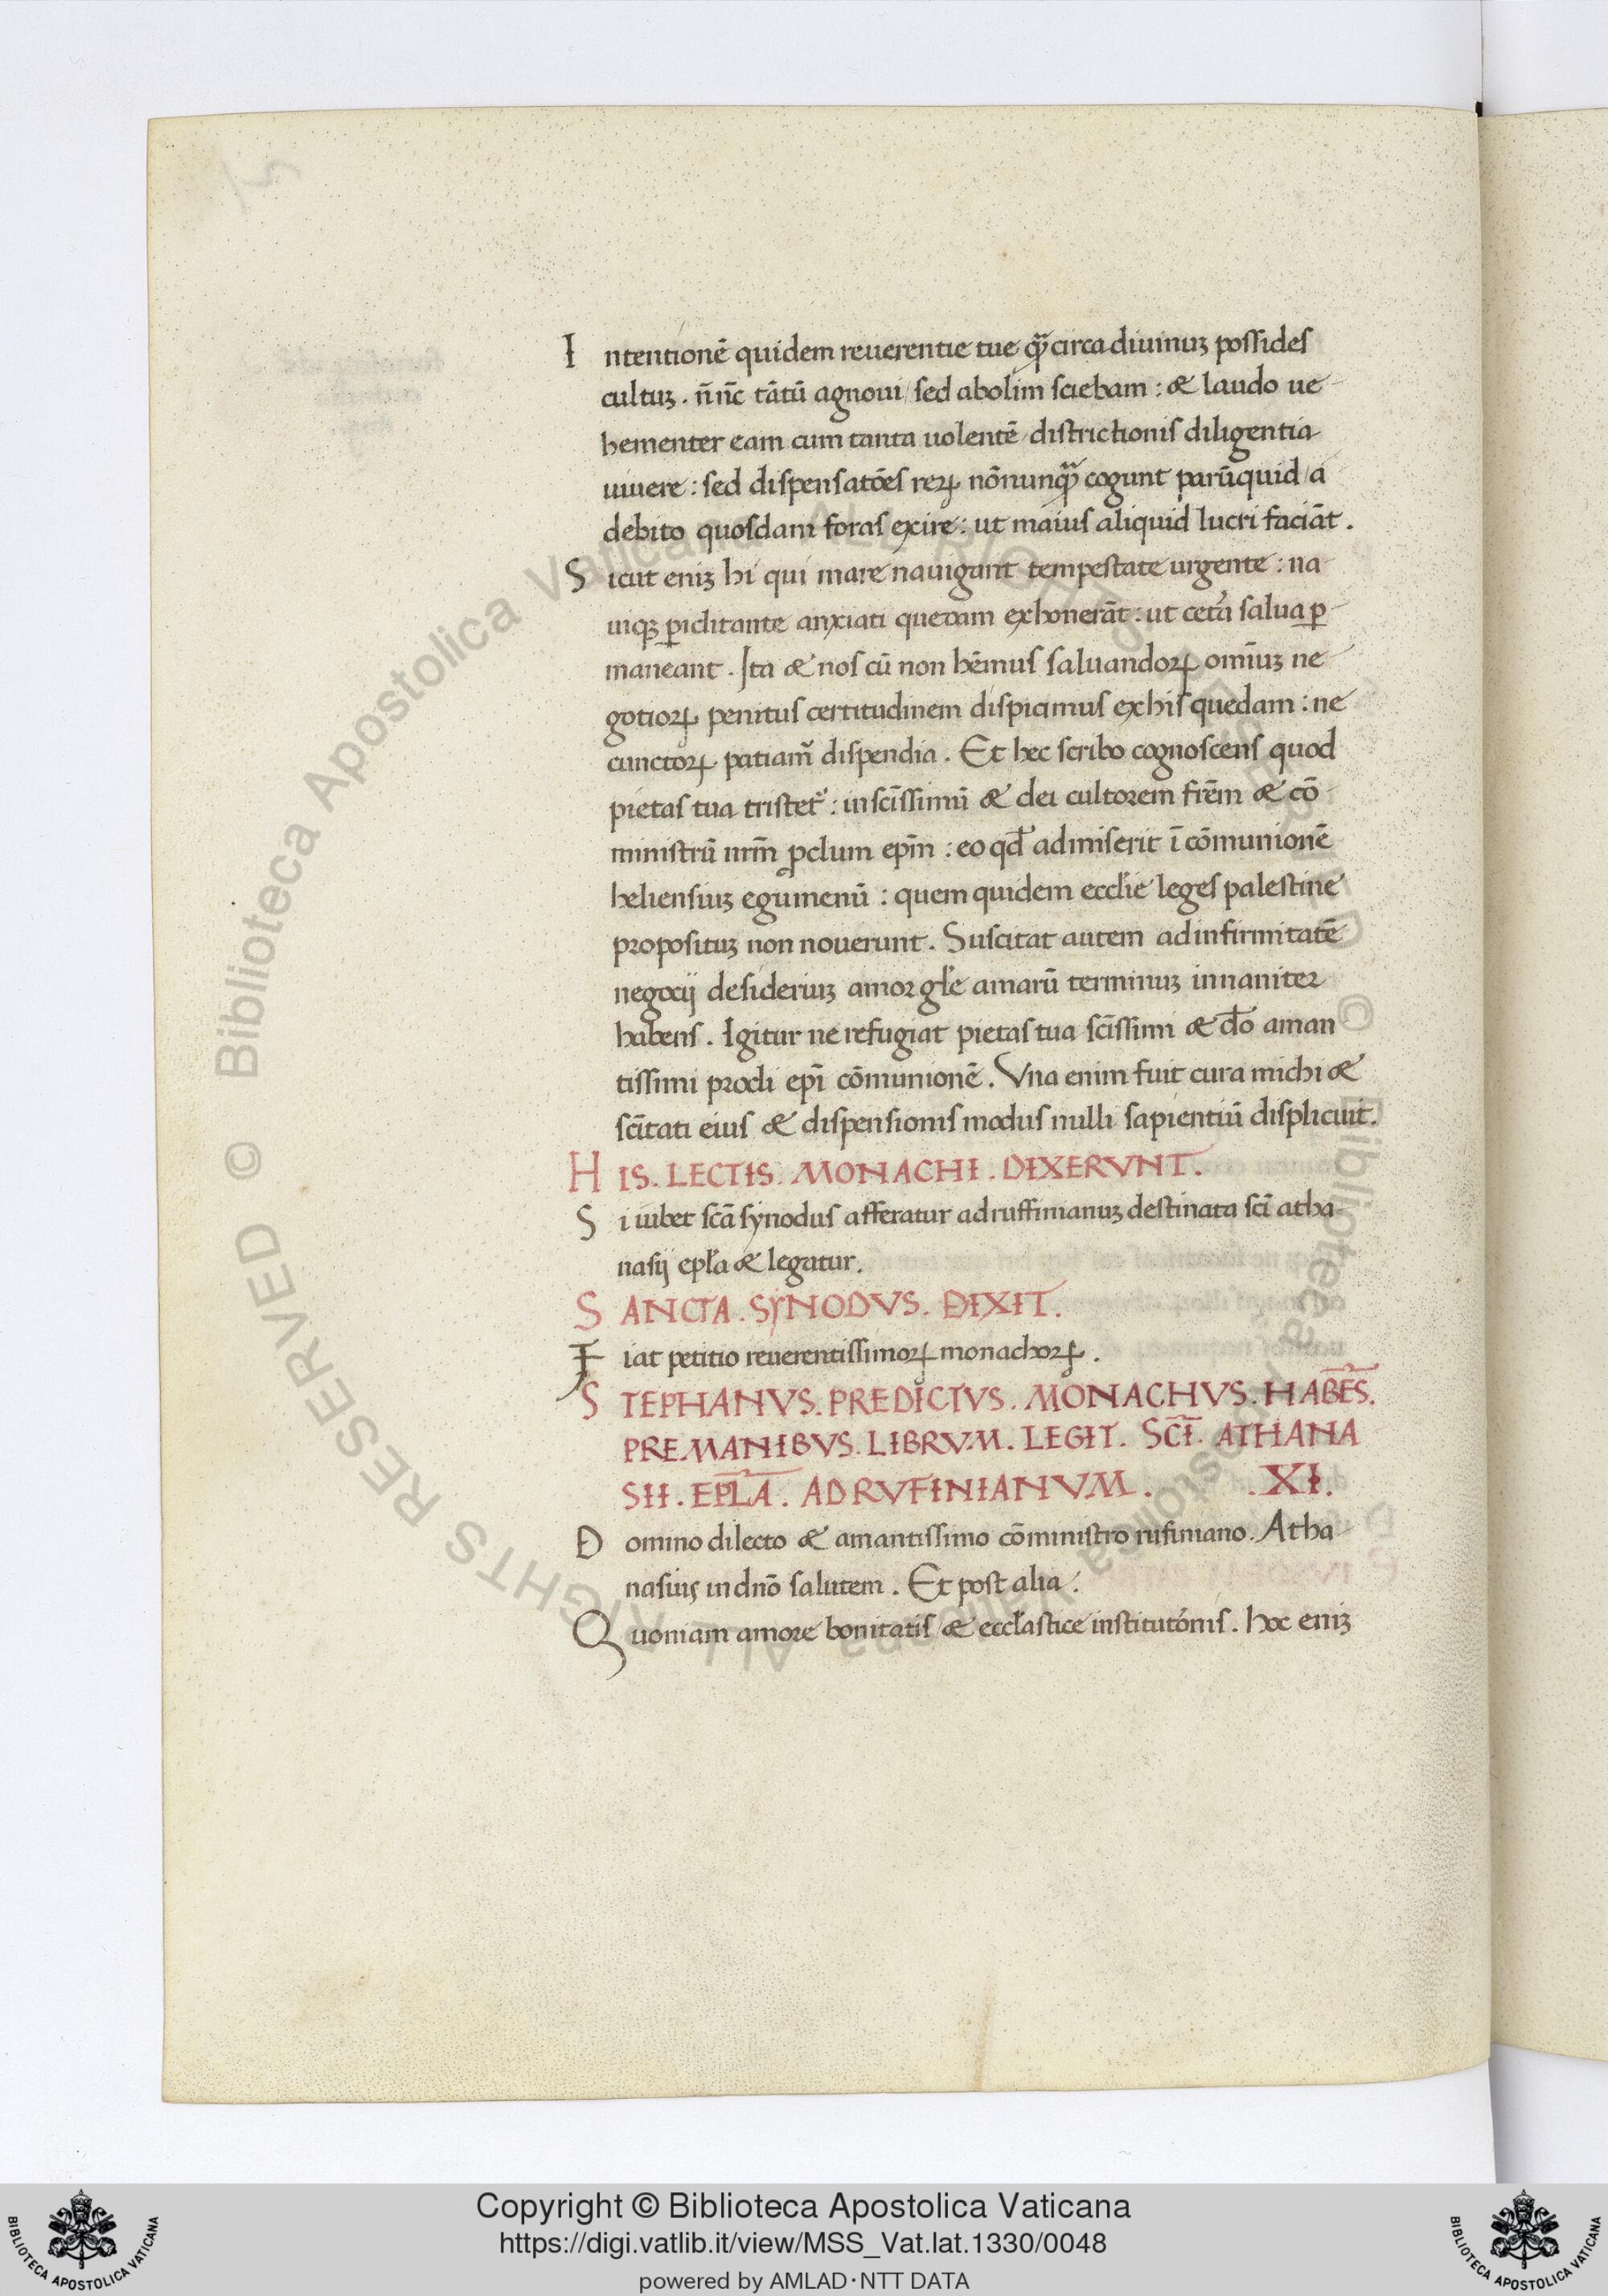 Intentionē quidem reuerentie tue quā circa diuinuꝫ possides
cultuꝫ . n̄ nc̄ tātū agnoui / sed ab olim sciebam : & laudo ue
hementer eam cum tanta uolentē districtionis diligentia
uiuere : sed dispensatōes reꝝ nōnunquā cogunt parūquid / a
debito quosdam foras exire : ut maius aliquid lucri faciāt .
Sicut eniꝫ hi qui mare nauigant tempestate urgente : na
uiqꝫ ꝑiclitante anxiati quedam exhonerāt : ut cet̄a salua ꝑ
maneant . Ita & nos cū non hēmus saluandoꝝ omīuꝫ ne
gotioꝝ penitus certitudinem dispicimus ex his quedam : ne
cunctoꝝ patiam᷑ dispendia . Et hec scribo cognoscens quod
pietas tua tristet᷑ : in scīssimū & dei cultorem frēm & cō
ministrū nrm̄ ꝓclum epm̄ : eo qđ admiserit ī cōmunionē
heliensiuꝫ egumenū : quem quidem eccłie leges palestine
proposituꝫ non nouerunt . Suscitat autem ad infirmitatē
negocij desideriuꝫ amor głe amarū terminuꝫ innaniter
habens . Igitur ne refugiat pietas tua scīssimi & đo aman
tissimi procli epī cōmunionē . Vna enim fuit cura michi &
scītati eius & dispensionis modus nulli sapientiū displicuit .
HIS . LECTIS . MONACHI . DIXERVNT .
Si iubet scā synodus afferatur ad ruffinianuꝫ destinata scī atha
nasij epła & legatur .
SANCTA . SYNODVS . DIXIT .
Fiat petitio reuerentissimoꝝ monachoꝝ .
STEPHANVS . PREDICTVS . MONACHVS . HABĒS .
PRE MANIBVS . LIBRVM . LEGIT . SCĪ . ATHANA
SII . EPLĀ . AD RVFINIANVM . . XI .
Domino dilecto & amantissimo cōministro rufiniano . Atha
nasius in dnō salutem . Et post alia .
Quoniam amore bonitatis / & eccłastice institutōnis . hoc eniꝫ
Copyright © Biblioteca Apostolica Vaticana
https://digi.vatlib.it/view/MSS_Vat.lat.1330/0048
powered by AMLAD·NTT DATA
BIBLIOTECA APOSTOLICA VATICANA
BIBLIOTECA APOSTOLICA VATICANA
© Biblioteca Apostolica Vaticana ALL RIGHTS RESERVED © Biblioteca Apostolica Vaticana ALL RIGHTS RESERVED